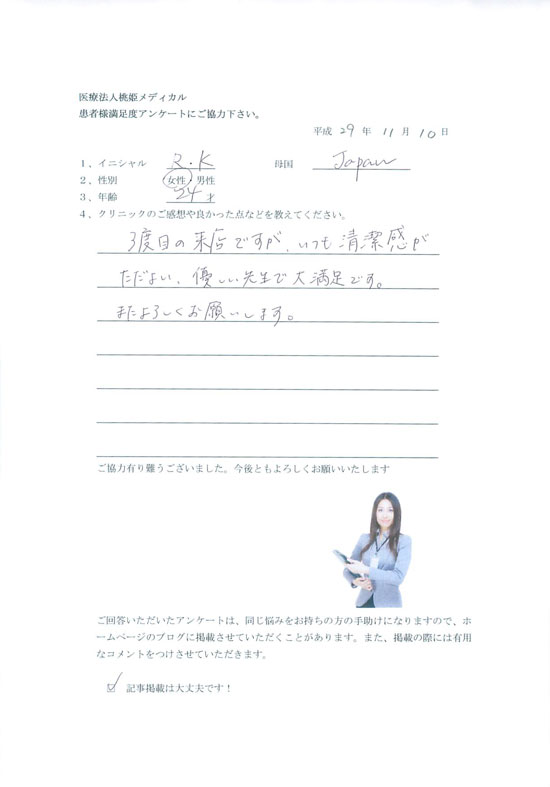 医療法人桃姫メディカル
患者様満足度アンケートにご協力下さい。
平成 29 年 11 月 10 日
1、イニシャル R.K 母国 Japan
2、性別 女性・男性
3、年齢 24 才
4、クリニックのご感想や良かった点などを教えてください。
3度目の来店ですが、いつも清潔感が
ただよい、優しい先生で大満足です。
またよろしくお願いします。
ご協力有り難うございました。今後ともよろしくお願いいたします
ご回答いただいたアンケートは、同じ悩みをお持ちの方の手助けになりますので、ホ
ームページのブログに掲載させていただくことがあります。また、掲載の際には有用
なコメントをつけさせていただきます。
☑ 記事掲載は大丈夫です！